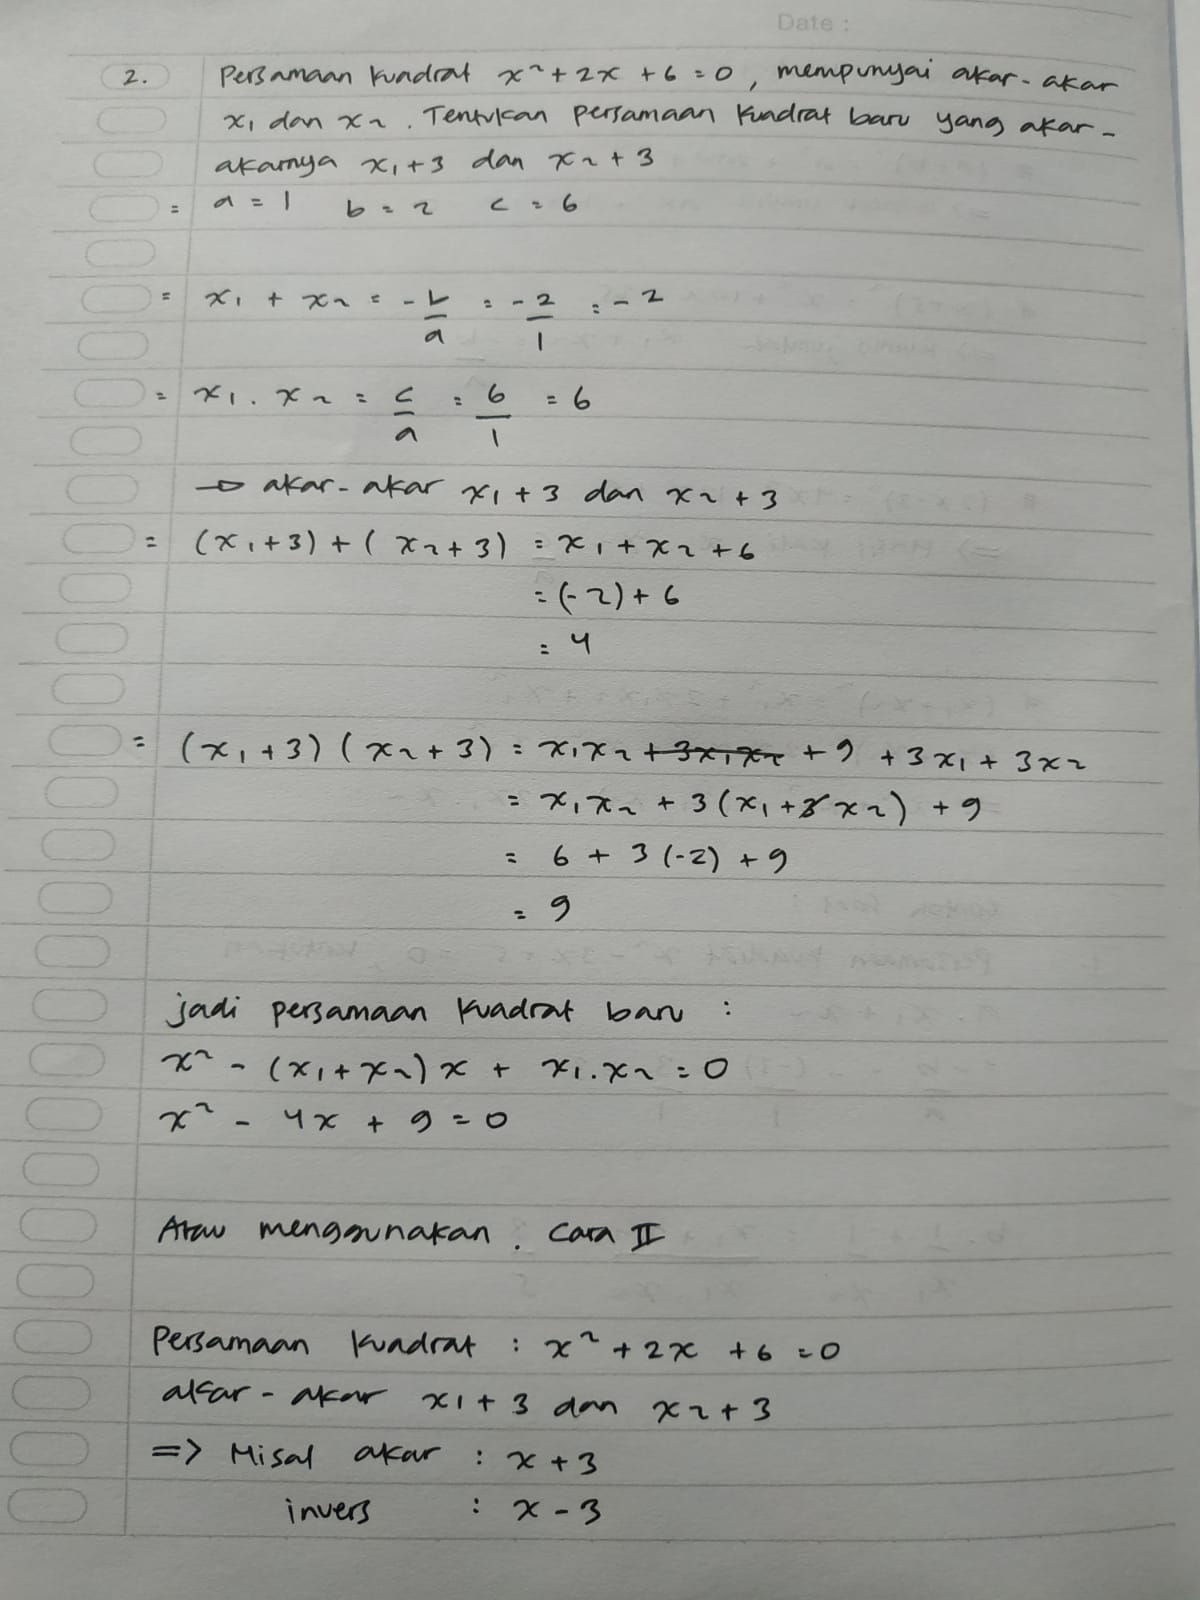 Date :
2. Persamaan kuadrat x² + 2x + 6 = 0 , mempunyai akar-akar
x₁ dan x₂ . Tentukan persamaan kuadrat baru yang akar-
akarnya x₁ + 3 dan x₂ + 3
= a = 1 b = 2 c = 6
= x₁ + x₂ = -b/a = -2/1 = -2
= x₁ . x₂ = c/a = 6/1 = 6
→ akar-akar x₁ + 3 dan x₂ + 3
= (x₁+3) + (x₂+3) = x₁ + x₂ + 6
= (-2) + 6
= 4
= (x₁+3) (x₂+3) = x₁x₂ + 3x₁x₂ + 9 + 3x₁ + 3x₂
= x₁x₂ + 3(x₁ + x₂) + 9
= 6 + 3(-2) + 9
= 9
jadi persamaan kuadrat baru :
x² - (x₁+x₂)x + x₁.x₂ = 0
x² - 4x + 9 = 0
Atau menggunakan . Cara II
Persamaan kuadrat : x² + 2x + 6 = 0
akar-akar x₁ + 3 dan x₂ + 3
=> Misal akar : x + 3
invers : x - 3